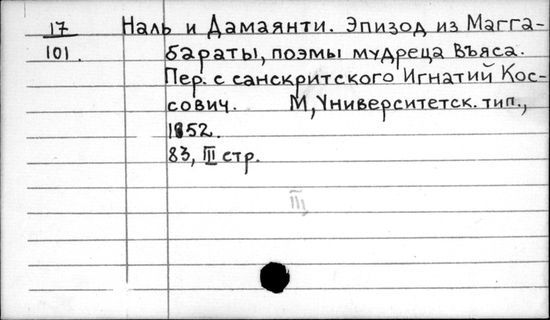 17 Наль и Дамаянти. Эпизод из Магга-
101. бараты, поэмы мудреца Въяса.
Пер. с санскритского Игнатий Кос-
сович. М, Университетск. тип.,
1852.
83, III стр.
III,